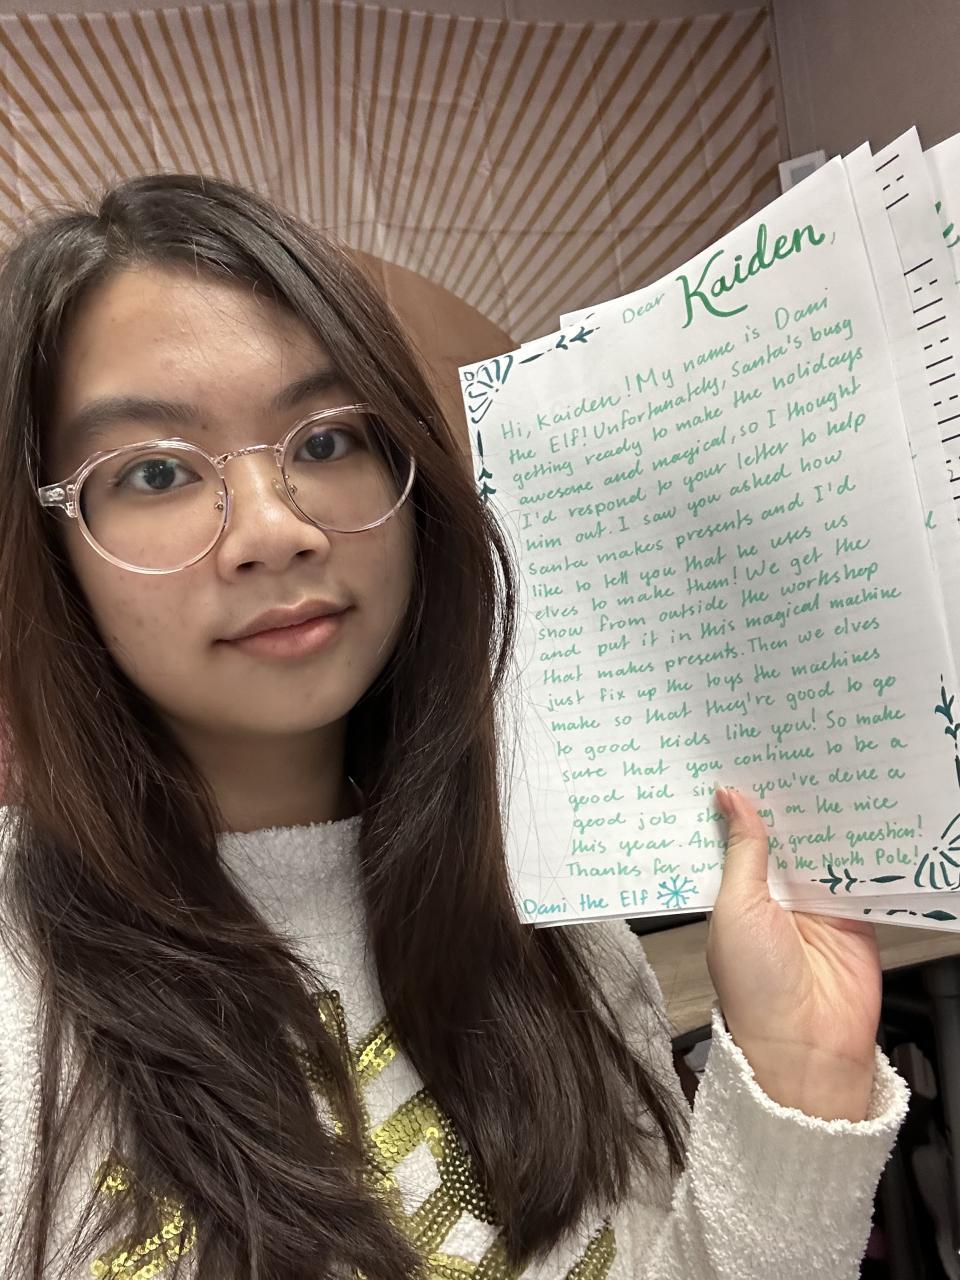 Dear Kaiden,
Hi, Kaiden! My name is Dani
the Elf! Unfortunately, Santa's busy
getting ready to make the holidays
awesome and magical, so I thought
I'd respond to your letter to help
him out. I saw you asked how
Santa makes presents and I'd
like to tell you that he uses us
elves to make them! We get the
snow from outside the workshop
and put it in this magical machine
that makes presents. Then we elves
just fix up the toys the machines
make so that they're good to go
to good kids like you! So make
sure that you continue to be a
good kid you've done a
good job on the nice
this year. great question!
Thanks for to the North Pole!
Dani the Elf